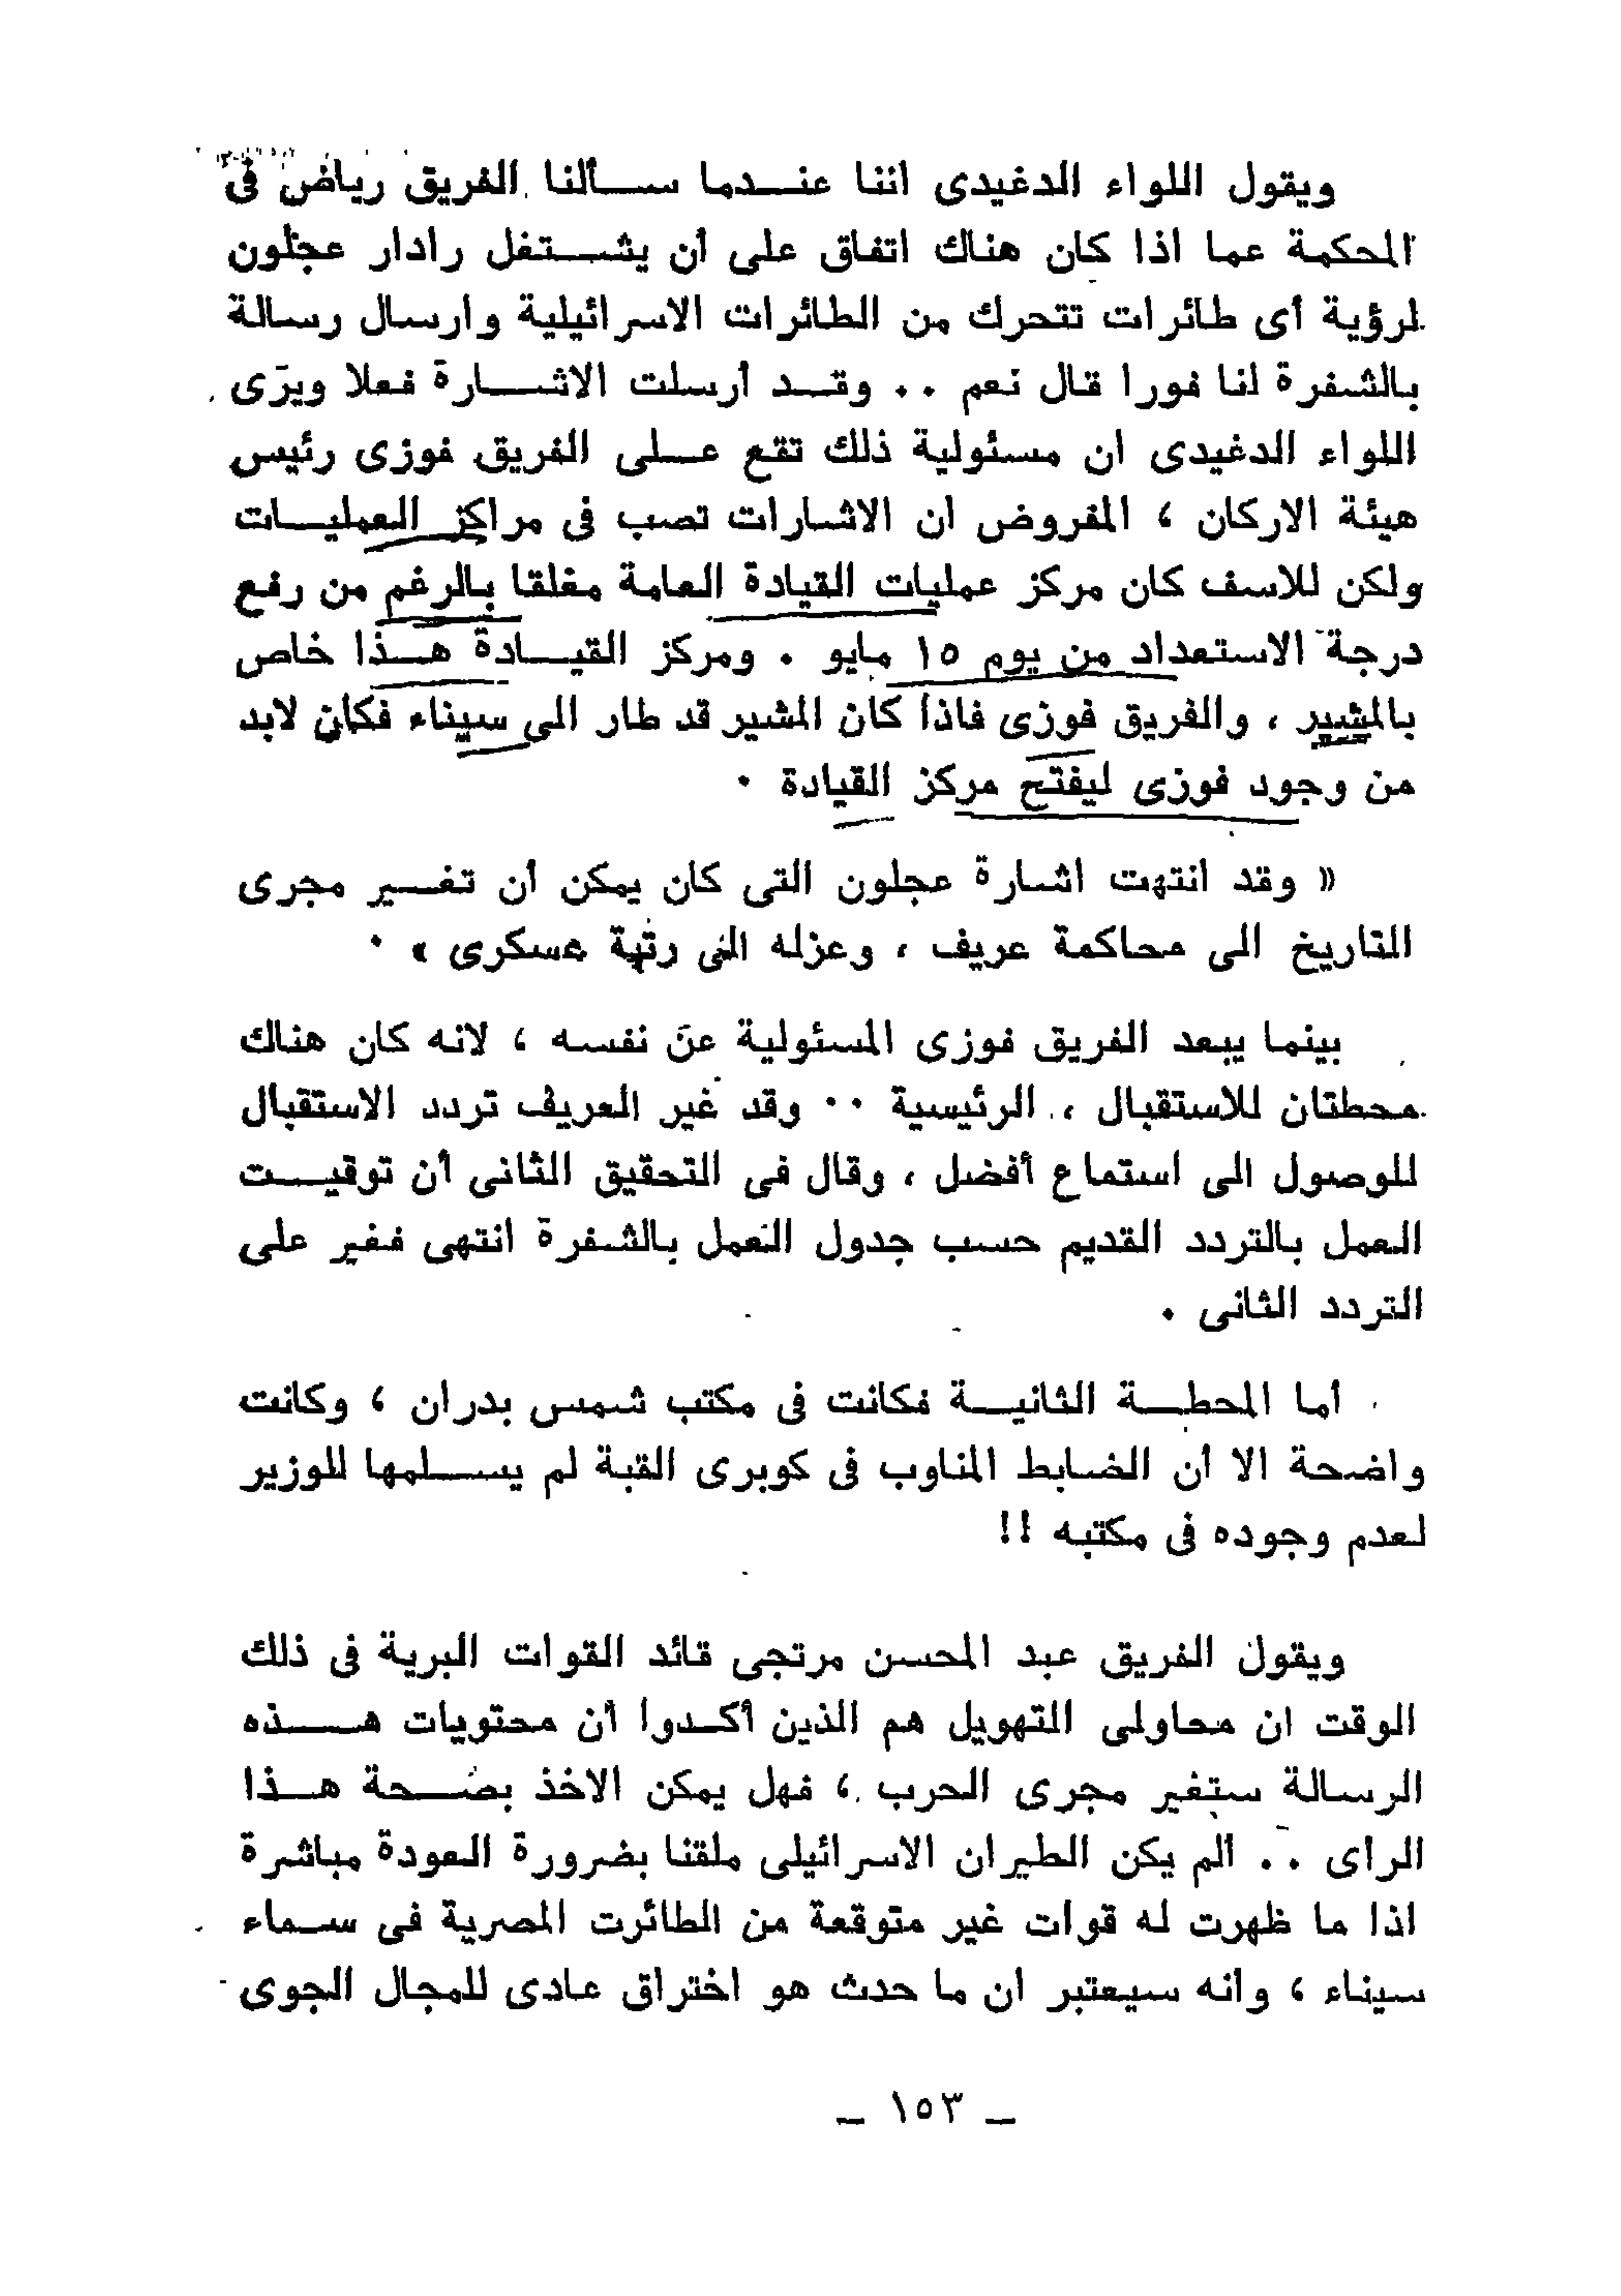 ويقول اللواء الدغيدى اننا عندما سألنا الفريق رياض فى
المحكمة عما اذا كان هناك اتفاق على أن يشتغل رادار عجلون
لرؤية أى طائرات تتحرك من الطائرات الاسرائيلية وارسال رسالة
بالشفرة لنا فورا قال نعم .. وقد أرسلت الاشارة فعلا ويرى
اللواء الدغيدى ان مسئولية ذلك تقع على الفريق فوزى رئيس
هيئة الاركان ، المفروض ان الاشارات تصب فى مراكز العمليات
ولكن للاسف كان مركز عمليات القيادة العامة مغلقا بالرغم من رفع
درجة الاستعداد من يوم ١٥ مايو . ومركز القيادة هذا خاص
بالمشير ، والفريق فوزى فاذا كان المشير قد طار الى سيناء فكان لابد
من وجود فوزى ليفتح مركز القيادة .
« وقد انتهت اشارة عجلون التى كان يمكن أن تغير مجرى
التاريخ الى محاكمة عريف ، وعزله الى رتبة عسكرى » .
بينما يبعد الفريق فوزى المسئولية عن نفسه ، لانه كان هناك
محطتان للاستقبال ، الرئيسية .. وقد غير العريف تردد الاستقبال
للوصول الى استماع أفضل ، وقال فى التحقيق الثانى أن توقيت
العمل بالتردد القديم حسب جدول العمل بالشفرة انتهى فغير على
التردد الثانى .
أما المحطة الثانية فكانت فى مكتب شمس بدران ، وكانت
واضحة الا أن الضابط المناوب فى كوبرى القبة لم يسلمها للوزير
لعدم وجوده فى مكتبه !!
ويقول الفريق عبد المحسن مرتجى قائد القوات البرية فى ذلك
الوقت ان محاولى التهويل هم الذين أكدوا أن محتويات هذه
الرسالة ستغير مجرى الحرب ، فهل يمكن الاخذ بصحة هذا
الراى .. الم يكن الطيران الاسرائيلى ملقنا بضرورة العودة مباشرة
اذا ما ظهرت له قوات غير متوقعة من الطائرت المصرية فى سماء
سيناء ، وانه سيعتبر ان ما حدث هو اختراق عادى للمجال الجوى
– ١٥٣ –